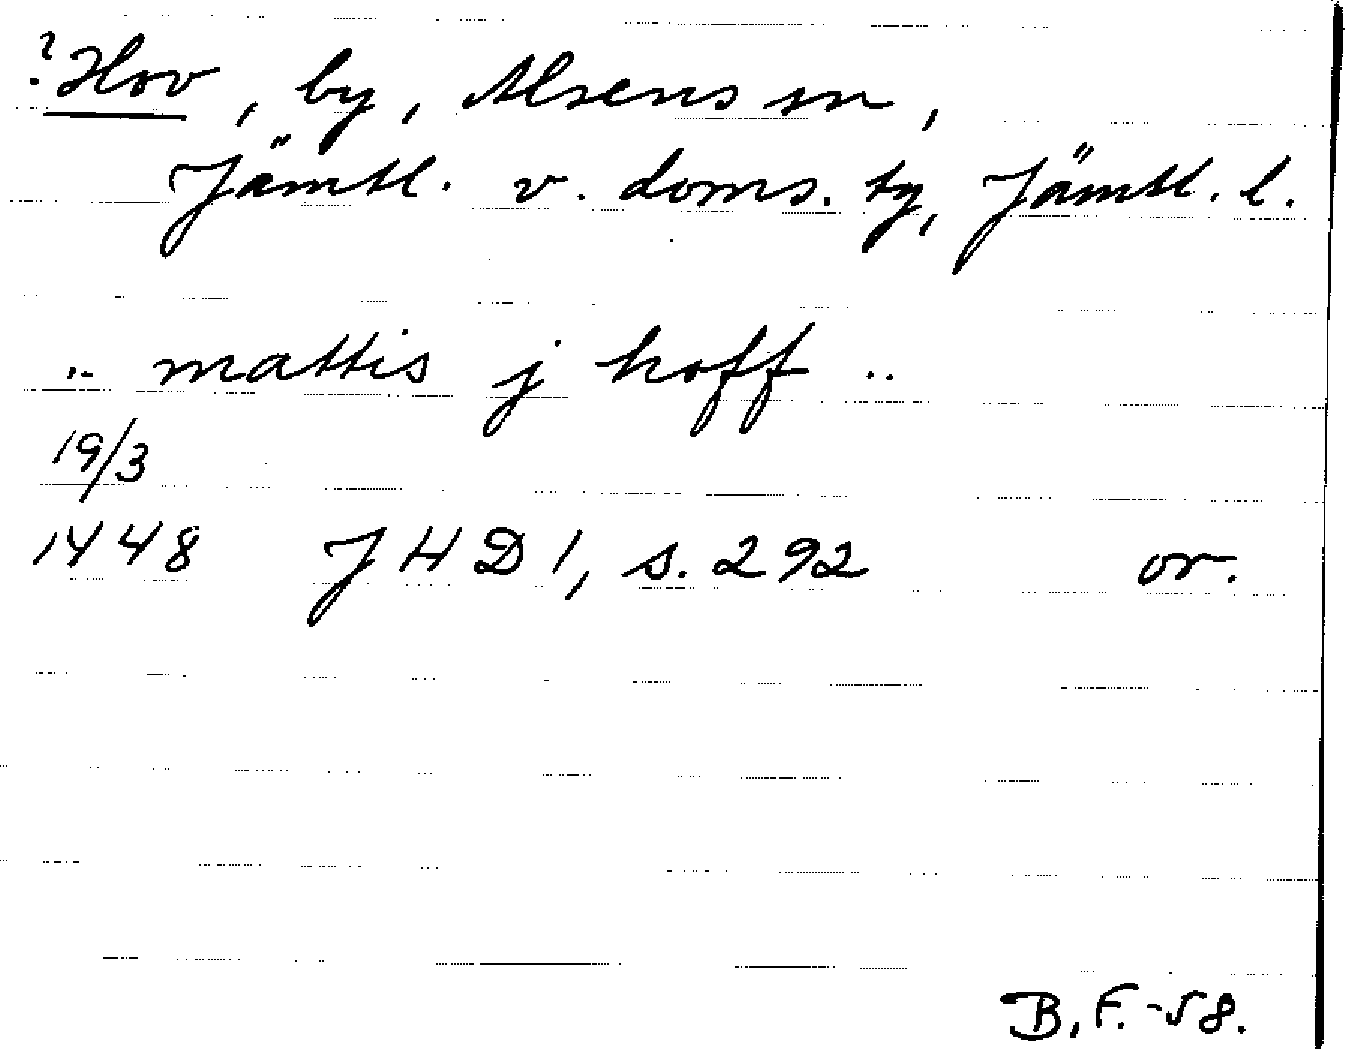 ? Hov, by, Alsens sn,
Jämtl. v. doms. tg, Jämtl. l.
.. mattis j hoff ..
19/3
1448 JHD 1, s. 292 or.
B. F. -58.